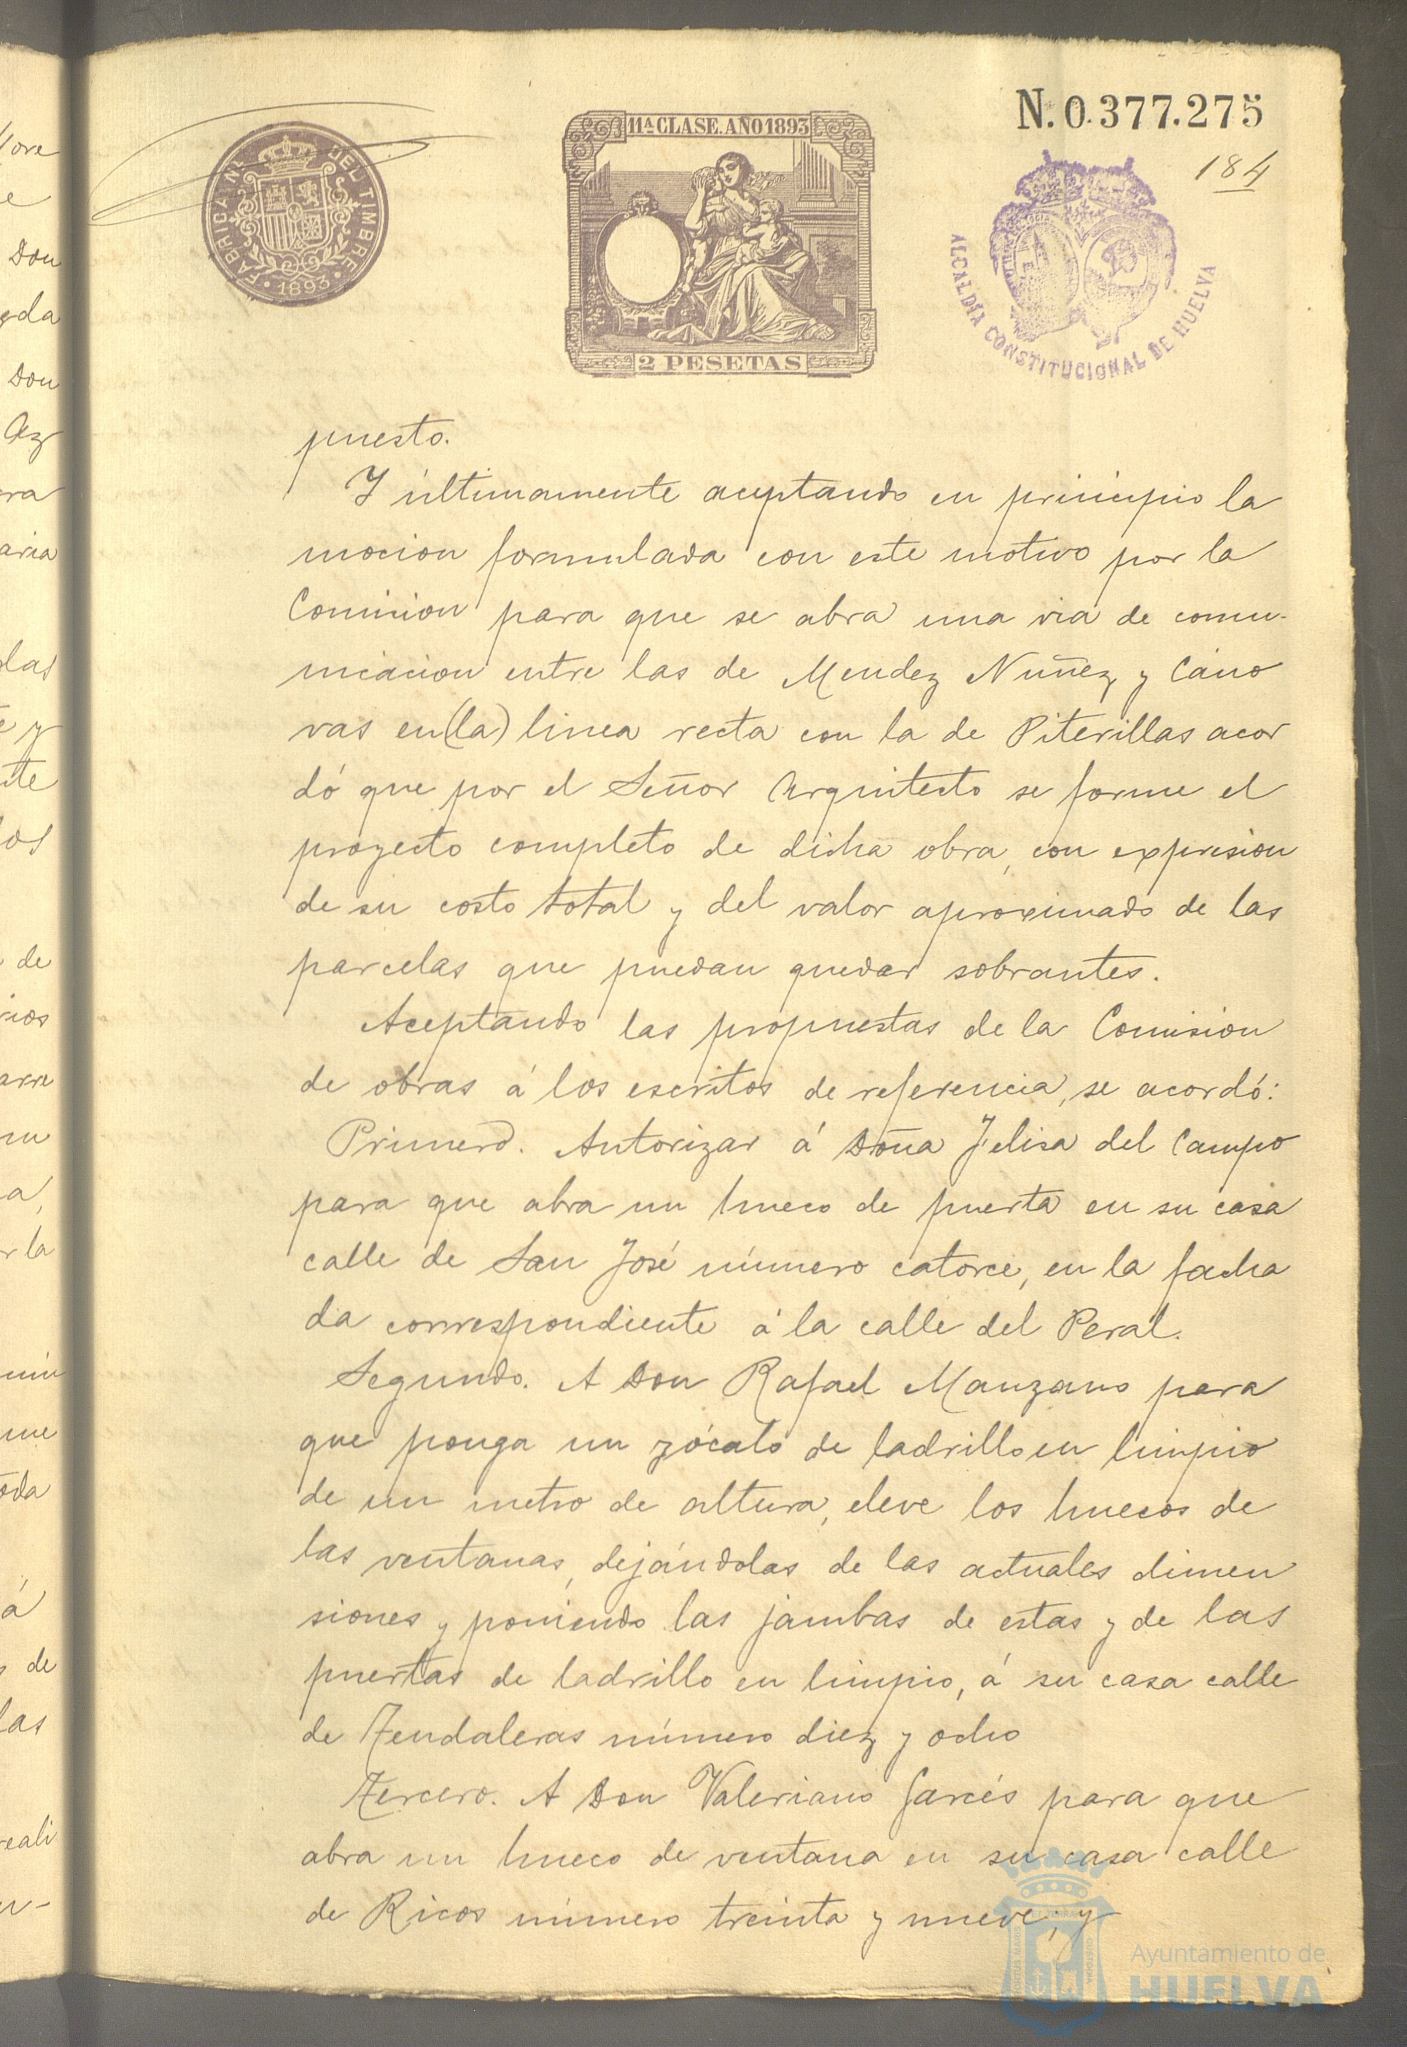 N. 0.377.275
184
FÁBRICA NL. DEL TIMBRE
1893
11ª CLASE. AÑO 1893
2 PESETAS
ALCALDÍA CONSTITUCIONAL DE HUELVA
puesto.
Y últimamente aceptando en principio la
mocion formulada con este motivo por la
Comision para que se abra una via de comu-
nicacion entre las de Mendez Nuñez y Cáno
vas en (la) linea recta con la de Piterillas acor
dó que por el Señor Arquitecto se forme el
proyecto completo de dicha obra, con expresion
de su costo total y del valor aproximado de las
parcelas que puedan quedar sobrantes.
Aceptando las propuestas de la Comision
de obras á los escritos de referencia, se acordó:
Primero. Autorizar á Doña Felisa del Campo
para que abra un hueco de puerta en su casa
calle de San José número catorce, en la facha
da correspondiente á la calle del Peral.
Segundo. A Don Rafael Manzano para
que ponga un zócalo de ladrillo en limpio
de un metro de altura, eleve los huecos de
las ventanas, dejándolas de las actuales dimen
siones y poniendo las jambas de estas y de las
puertas de ladrillo en limpio, á su casa calle
de Tendaleras número diez y ocho
Tercero. A Don Valeriano Garcés para que
abra un hueco de ventana en su casa calle
de Ricos número treinta y nueve; y
Ayuntamiento de
HUELVA